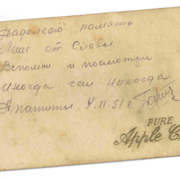 На долгую память
Леше от Славы
Вспомни и посмотри
иногда чем никогда
Апатиты 4.II 51 г
PURE
Apple C